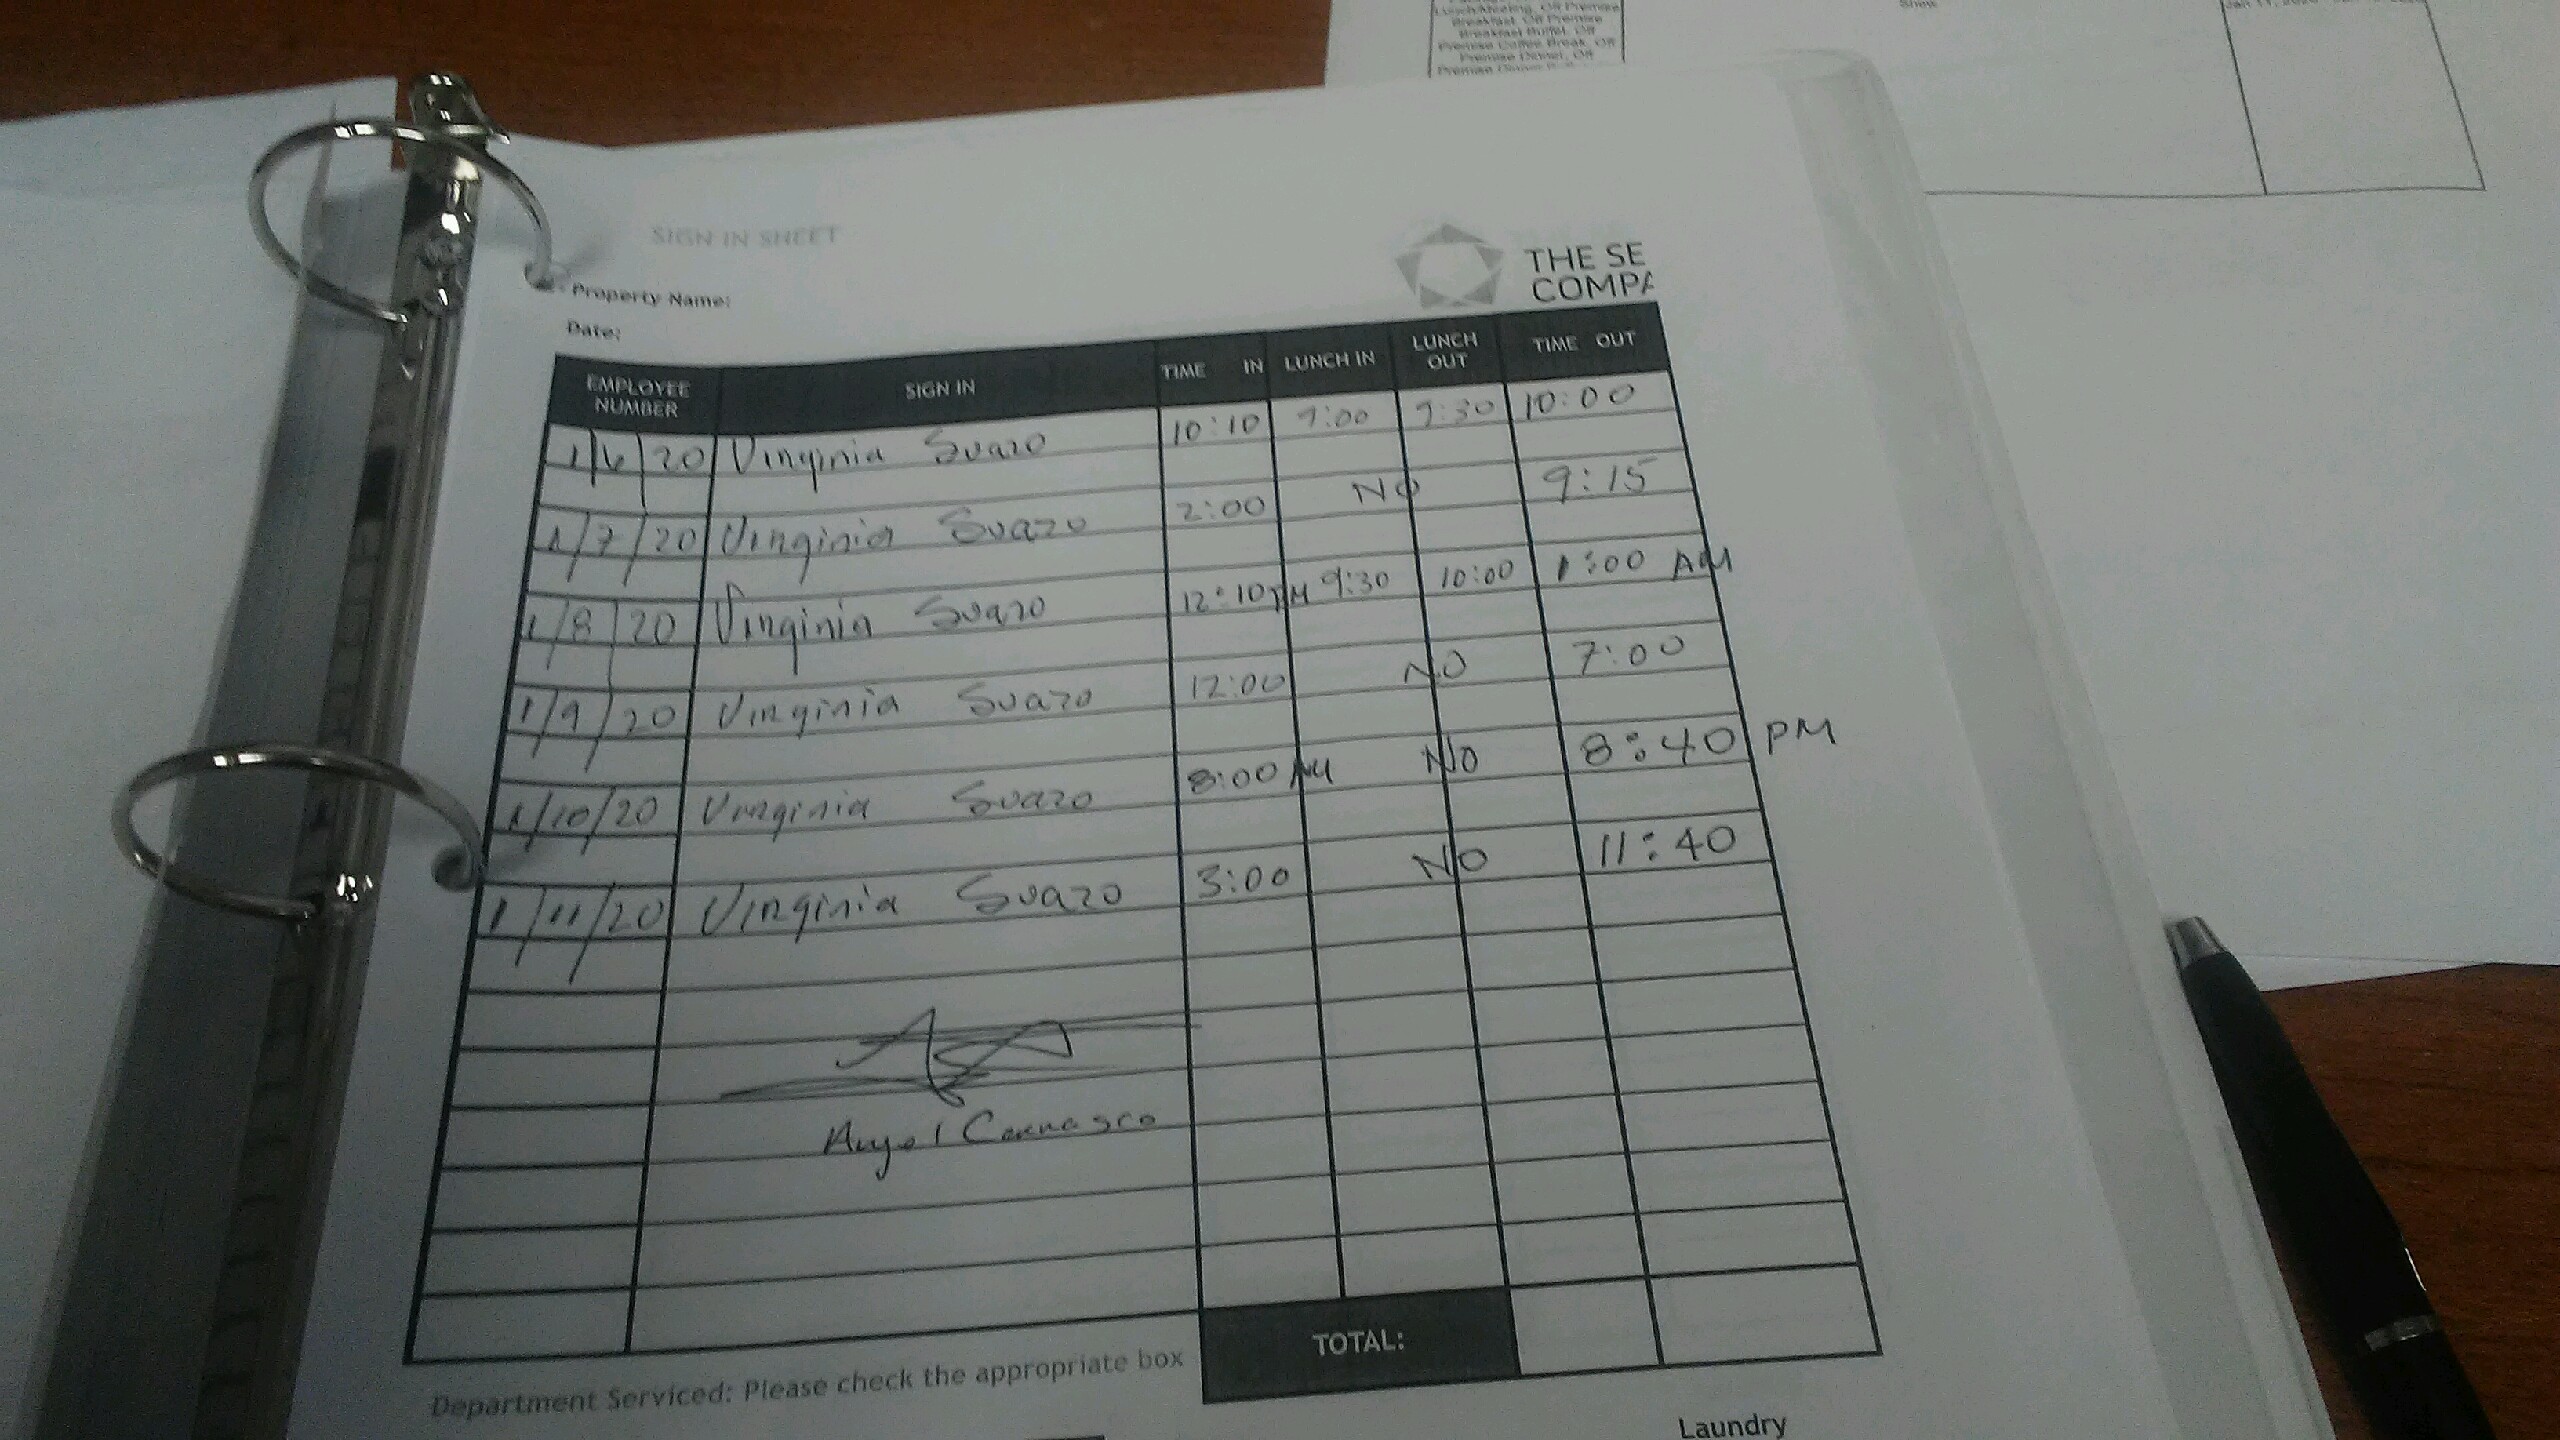 Lunch/Meeting, Off Premise
Breakfast, Off Premise
Breakfast Buffet, Off
Premise Coffee Break, Off
Premise Dinner, Off
Show
SIGN IN SHEET
THE SE
COMPA
Property Name:
Date:
EMPLOYEE NUMBER SIGN IN TIME IN LUNCH IN LUNCH OUT TIME OUT
1/6/20 Virginia Suazo 10:10 9:00 9:30 10:00
1/7/20 Virginia Suazo 2:00 NO 9:15
1/8/20 Virginia Suazo 12:10 PM 9:30 10:00 1:00 AM
1/9/20 Virginia Suazo 12:00 NO 7:00
1/10/20 Virginia Suazo 8:00 AM NO 8:40 PM
1/11/20 Virginia Suazo 3:00 NO 11:40
Angel Carrasco
TOTAL:
Department Serviced: Please check the appropriate box
Laundry